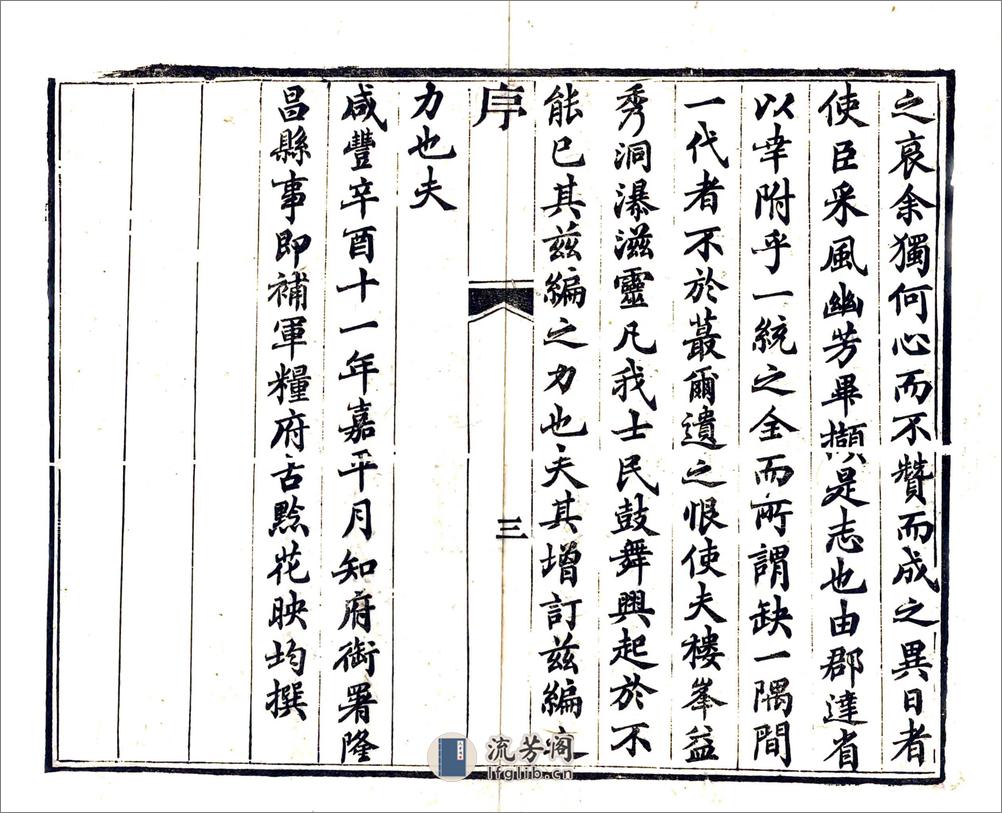 之裒余獨何心而不贊而成之異日者
使臣采風幽芳畢擷是志也由郡達省
以幸附乎一統之全而所謂缺一隅間
一代者不於蕞爾遺之恨使夫樓峯益
秀洞瀑滋靈凡我士民鼓舞興起於不
能已其茲編之力也夫其增訂茲編之
序
三
力也夫
咸豐辛酉十一年嘉平月知府銜署隆
昌縣事即補軍糧府古黔花映均撰
流芳阁
lfglib.cn